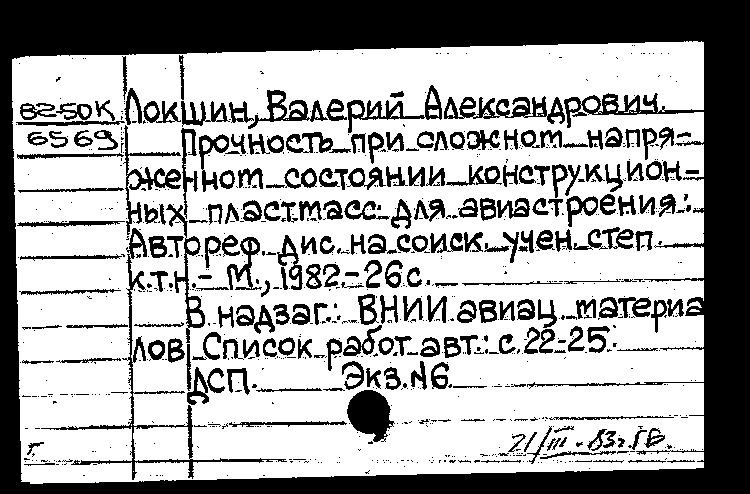 82-50К Локшин, Валерий Александрович.
6569 Прочность при сложном напря-
женном состоянии конструкцион-
ных пластмасс для авиастроения:
Автореф. дис. на соиск. учен. степ.
к.т.н.- М., 1982.-26с.
В надзаг.: ВНИИ авиац. материа
лов Список работ авт.: с.22-25.
ДСП. Экз.№6.
Г. 21/III-83г.